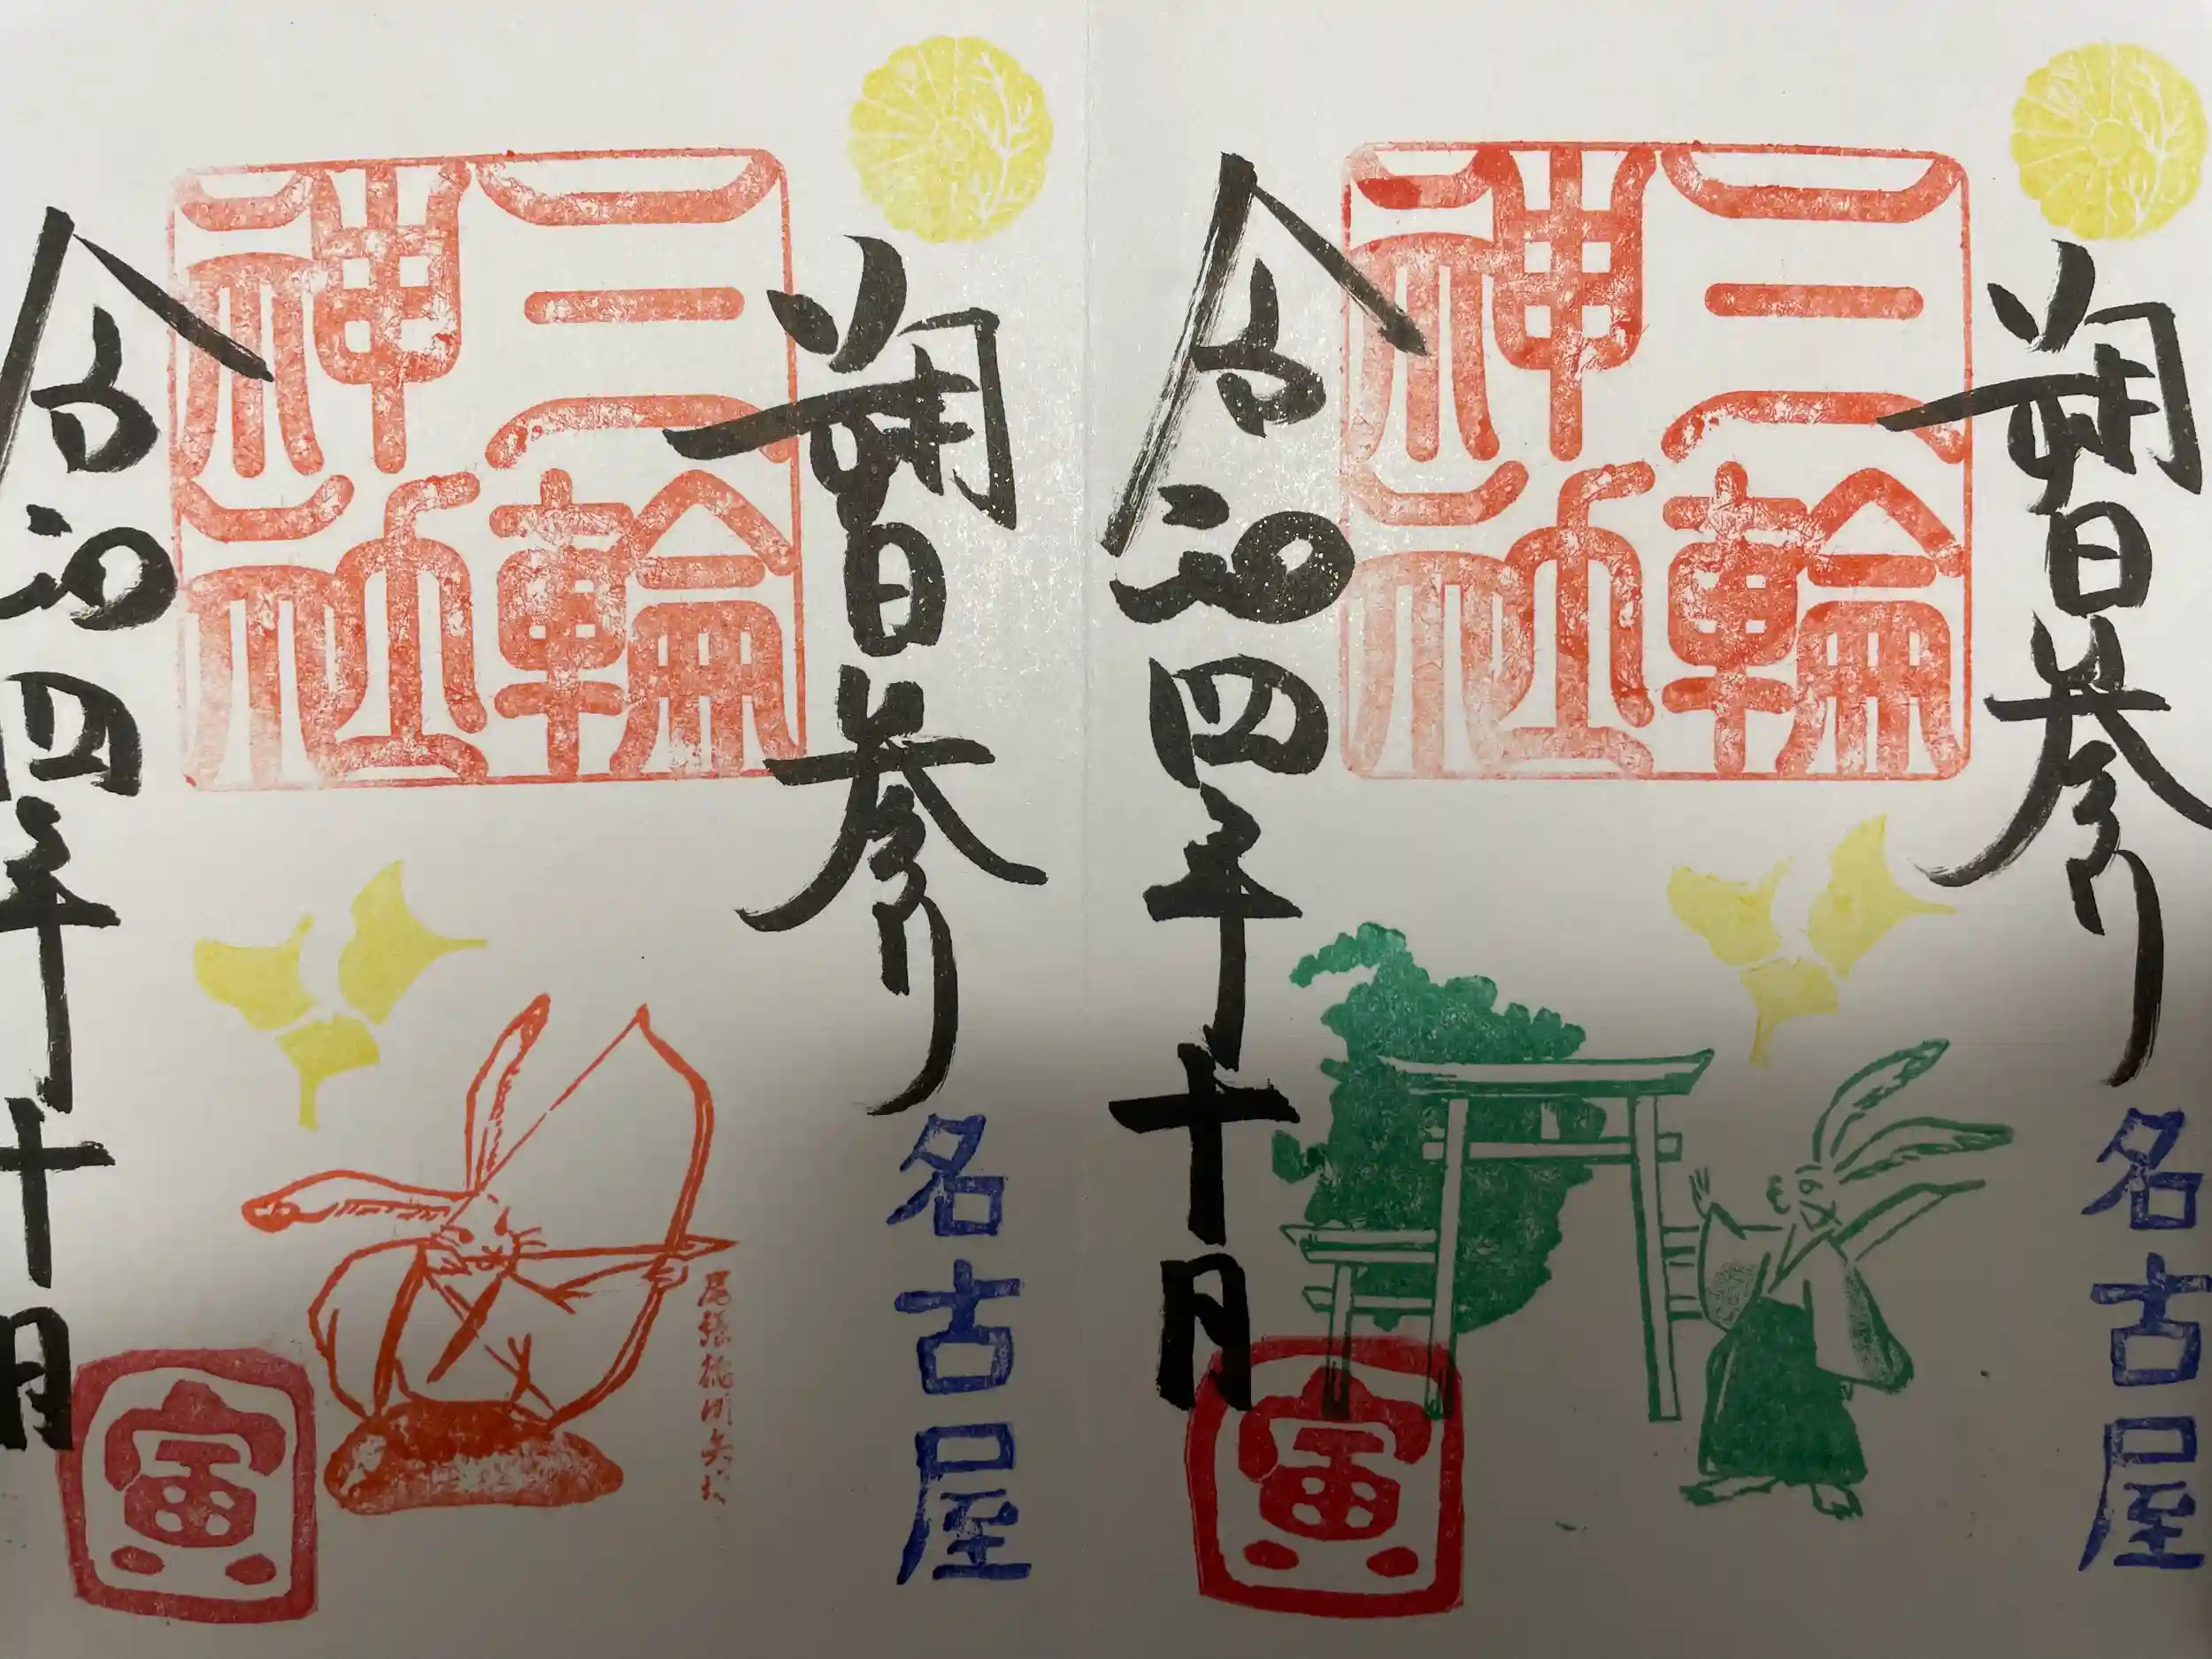 朔日参り
三輪
神社
名古屋
令和四年十月
尾張徳川矢場
寅
朔日参り
三輪
神社
名古屋
令和四年十月
寅